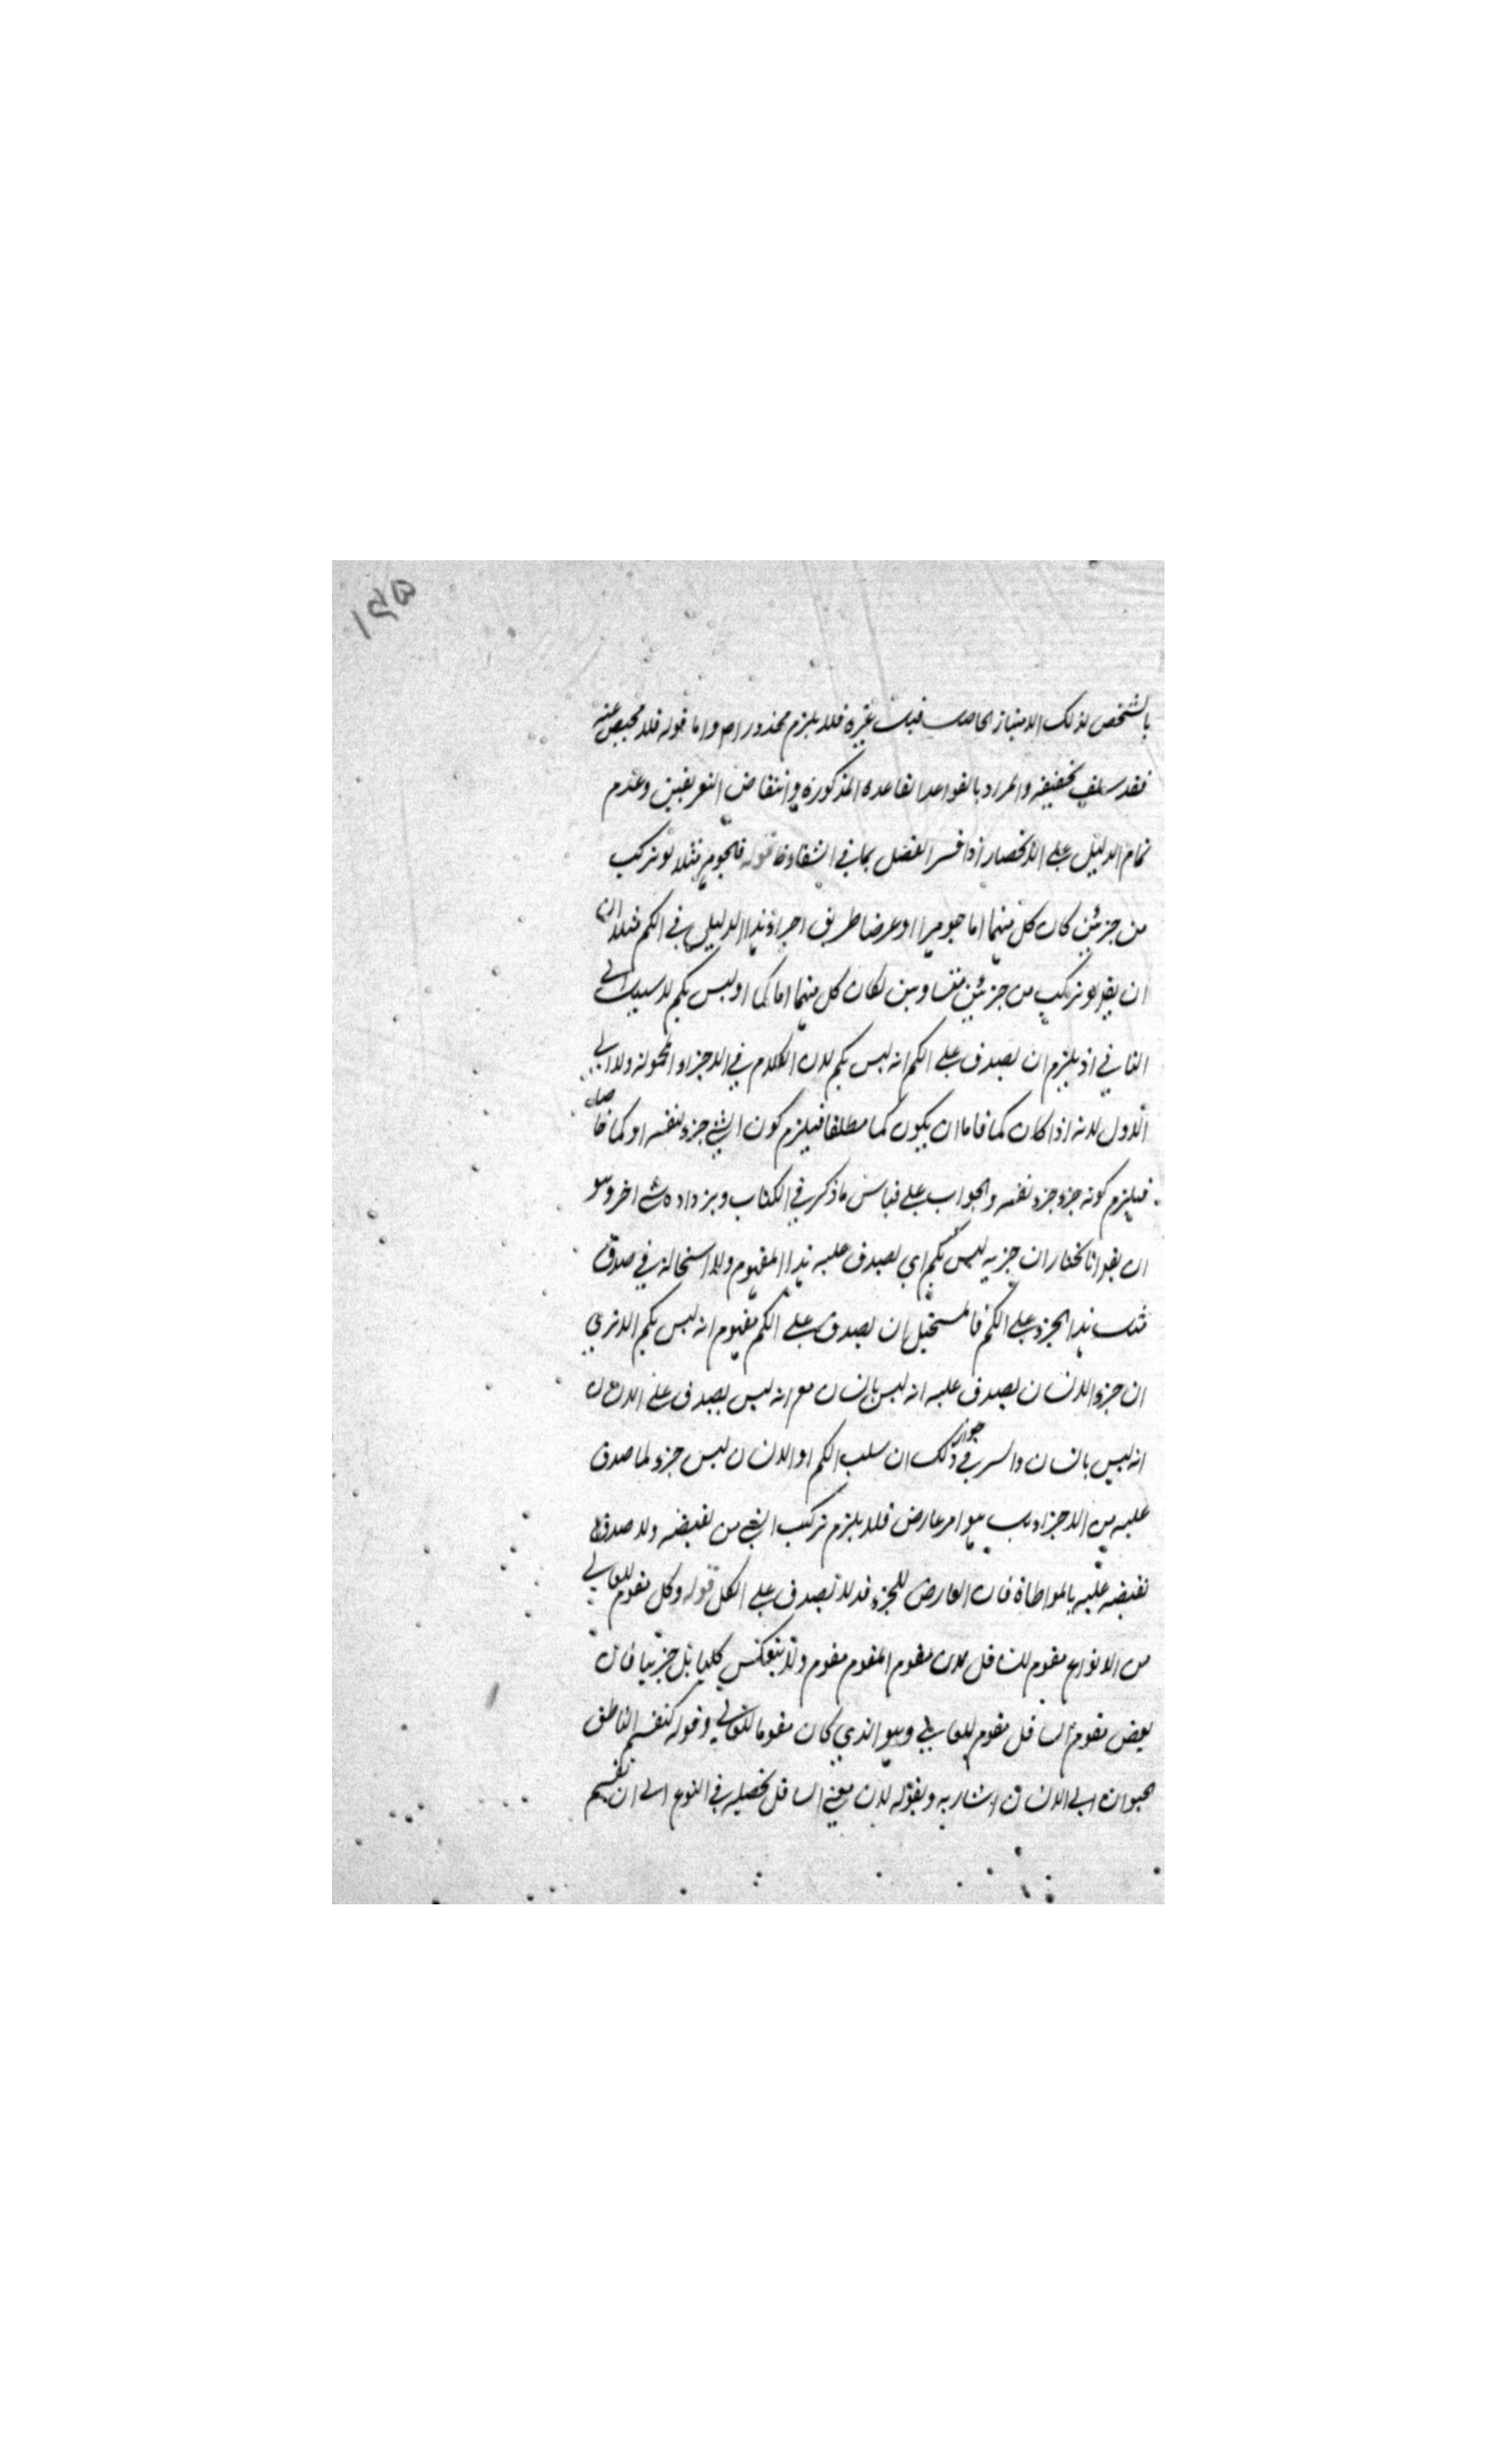 ١٤٥
بالشخص لذلك الامتياز الحاصل قبل غيره فلا يلزم محذور اصلا واما قوله فلا محيص عنه
فقد سلف تحقيقه والمراد بالقواعد القاعدة المذكورة وانتقاض التعريفين وعدم
تمام الدليل على الانحصار اذا فسر الفصل بما في الشفاء قوله فالجوهر مثلا لو تركب
من جزئين كان كل منهما اما جوهرا او عرضا طريق اجراء هذا الدليل في الكم مثلا
ان يقال لو تركب من جزئين متساويين لكان كل منهما اما كما او ليس بكم لا سبيل الى
الثاني اذ يلزم ان يصدق على الكم انه ليس بكم لان الكلام في الاجزاء المحمولة ولا الى
الاول لانه اذا كان كما فاما ان يكون كما مطلقا فيلزم كون الشيء جزء لنفسه او كما خاصا
فيلزم كونه جزء جزء نفسه والجواب على قياس ما ذكر في الكتاب ويزداد ههنا شيء اخر وهو
ان يقال انا نختار ان جزءه ليس بكم اي يصدق عليه هذا المفهوم ولا استحالة في صدق
مثل هذا الجزء على الكم فالمستحيل ان يصدق على الكم مفهوم انه ليس بكم الا ترى
ان جزء الانسان يصدق عليه انه ليس بانسان مع انه ليس يصدق على الانسان
انه ليس بانسان والسر في جواز ذلك ان سلب الكم او الانسان ليس جزء لما صدق
عليه من الاجزاء بل هو امر عارض فلا يلزم تركب الشيء من نقيضه ولا صدق
نقيضه عليه بالمواطاة فان العارض للجزء قد لا يصدق على الكل قوله وكل مقوم للعالي
من الانواع مقوم للسافل لان مقوم المقوم مقوم ولا ينعكس كليا بل جزئيا فان
بعض مقوم السافل مقوم للعالي وهو الذي كان مقوما للعالي وقوله كتقسيم الناطق
الحيوان الى الانسان اشار به وبقوله لان معنى السافل تحصيله في النوع الى ان تقسيم